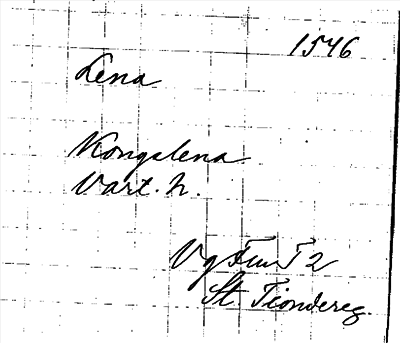 1546
Lena
Kongalena
Vart. h.
Vg Fru T 2
St. Tiondereg.